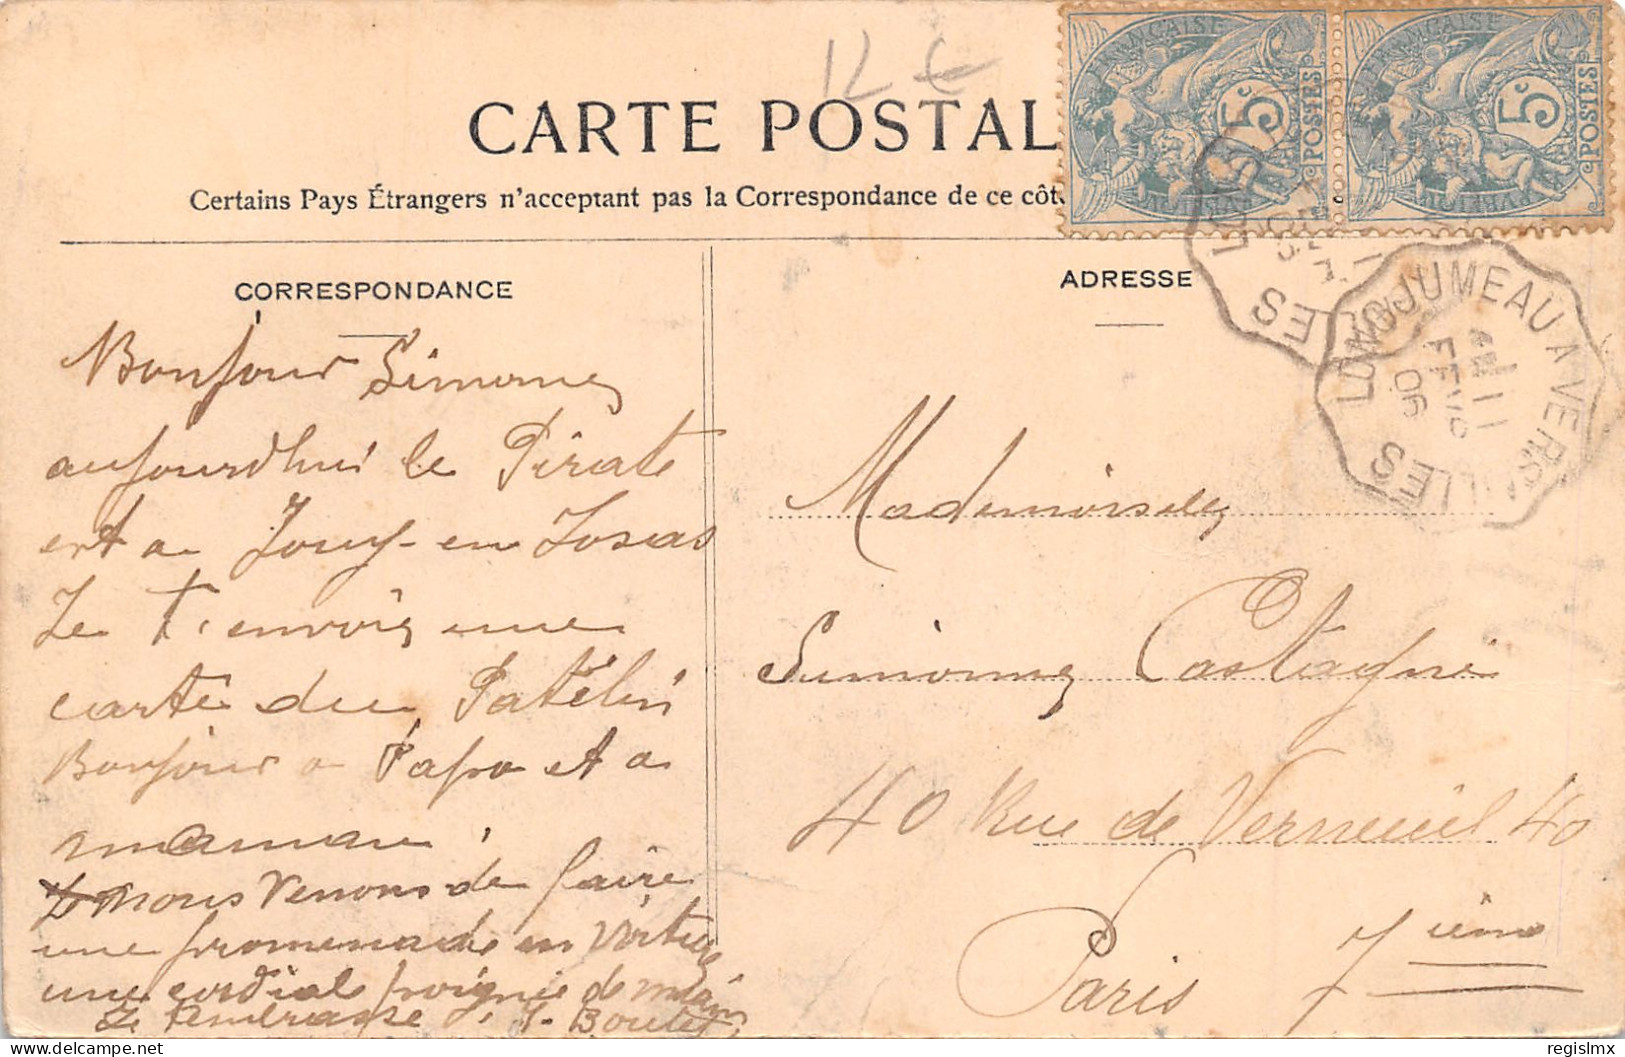 12 €
CARTE POSTAL
Certains Pays Étrangers n'acceptant pas la Correspondance de ce côt
FRANÇAISE
5c
POSTES
FRANÇAISE
5c
POSTES
LONGJUMEAU A VERSAILLES
11
FEVR
06
CORRESPONDANCE
ADRESSE
Bonjour Simone
aujourdhui le Pirate
est a Jouy-en Josas
Je t'envoie une
carte du Patelin
Bonjour a Papa et a
maman.
nous venons de faire
une promenade en voiture
une cordiale poignée de main
Je t'embrasse J. Boutet
Mademoiselle
Simonne Castagné
40 Rue de Verneuil 40
Paris 7ième
https://www.delcampe.net
regislmx